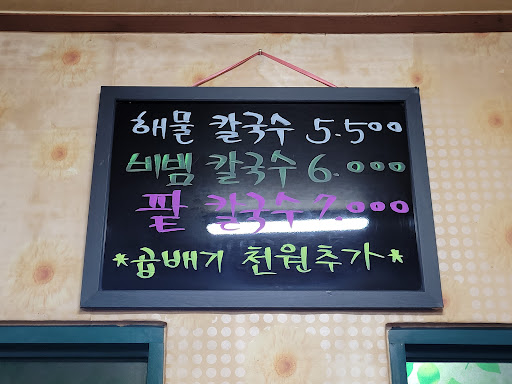 해물 칼국수 5.500
비빔 칼국수 6.000
팥 칼국수 7.000
*곱배기 천원추가*